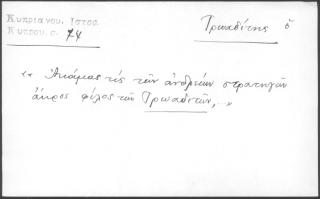 Κυπριανου. Ιστορ.
Κυπρου. σ. 74
Τρωαδίτης ὁ
"Ἀκάμας τις τῶν ἀνδρείων στρατηγῶν
ἄκρος φίλος τῶν Τρωαδιτῶν,.."